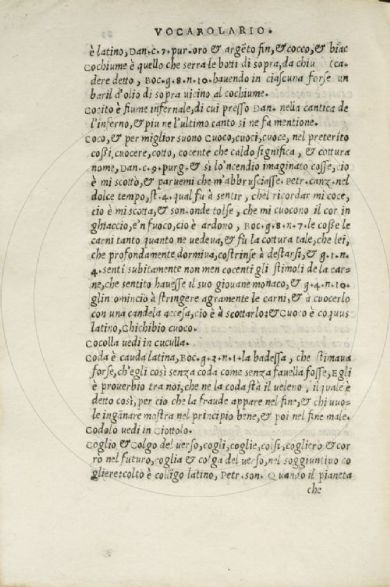 VOCABOLARIO.
è latino, DAN. c. 7. pur. oro & argēto fin, & cocco, & biac
Cochiume è quello che serra le botti di sopra, da chiu
dere detto, BOC. g. 8. n. 10. hauendo in ciascuna forse un
baril d'olio di sopra uicino al cochiume.
Cocito è fiume infernale, di cui presso DAN. nella cantica de
l'inferno, & piu ne l'ultimo canto si ne fa mentione.
Coco, & per miglior suono Cuoco, cuoci, cuoce, nel preterito
cossi, cuocere, cotto, cocente che caldo significa, & cottura
nome, DAN. c. 9. purg. & si lo'ncendio imaginato cosse, cio
è mi scottò, & paruemi che m'abbrusciasse. Petr. canz. nel
dolce tempo, st. 4. qual fu à sentir, chel ricordar mi coce,
cio è mi scotta, & son. onde tolse, che mi cuocono il cor in
ghiaccio, e'n fuoco, cio è ardono, BOC. g. 8. n. 7. le cosse le
carni tanto quanto ne uedeua, & fu la cottura tale, che lei,
che profondamente dormiua, costrinse à destarsi, & g. 1. n.
4. senti subitamente non men cocenti gli stimoli de la car
ne, che sentito hauesse il suo giouane monaco, & g. 4. n. 10.
glin comincio à stringere agramente le carni, & à cuocerlo
con una candela accesa, cio è à scottarlo: & Cuoco è coquus
latino, Chichibio cuoco.
Cocolla uedi in cuculla.
Coda è cauda latina, BOC. g. 2. n. 1. la badessa, che stimaua
forse, ch'egli così senza coda come senza fauella fosse, Egli
è prouerbio tra noi, che ne la coda stà il ueleno, il quale è
detto così, per cio che la fraude appare nel fin, & chi uuo
le ingānare mostra nel principio bene, & poi nel fine male.
Codolo uedi in Ciottolo.
Coglio, & Colgo del uerso, cogli, coglie, colsi, cogliero & cor
rò nel futuro, coglia & colga del uerso, nel soggiuntiuo co
gliere: colto è colligo latino, Petr. son. Quando il pianeta
che